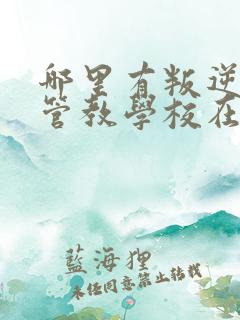 哪里有叛逆
管教學校在
藍海狸
未经同意禁止转载